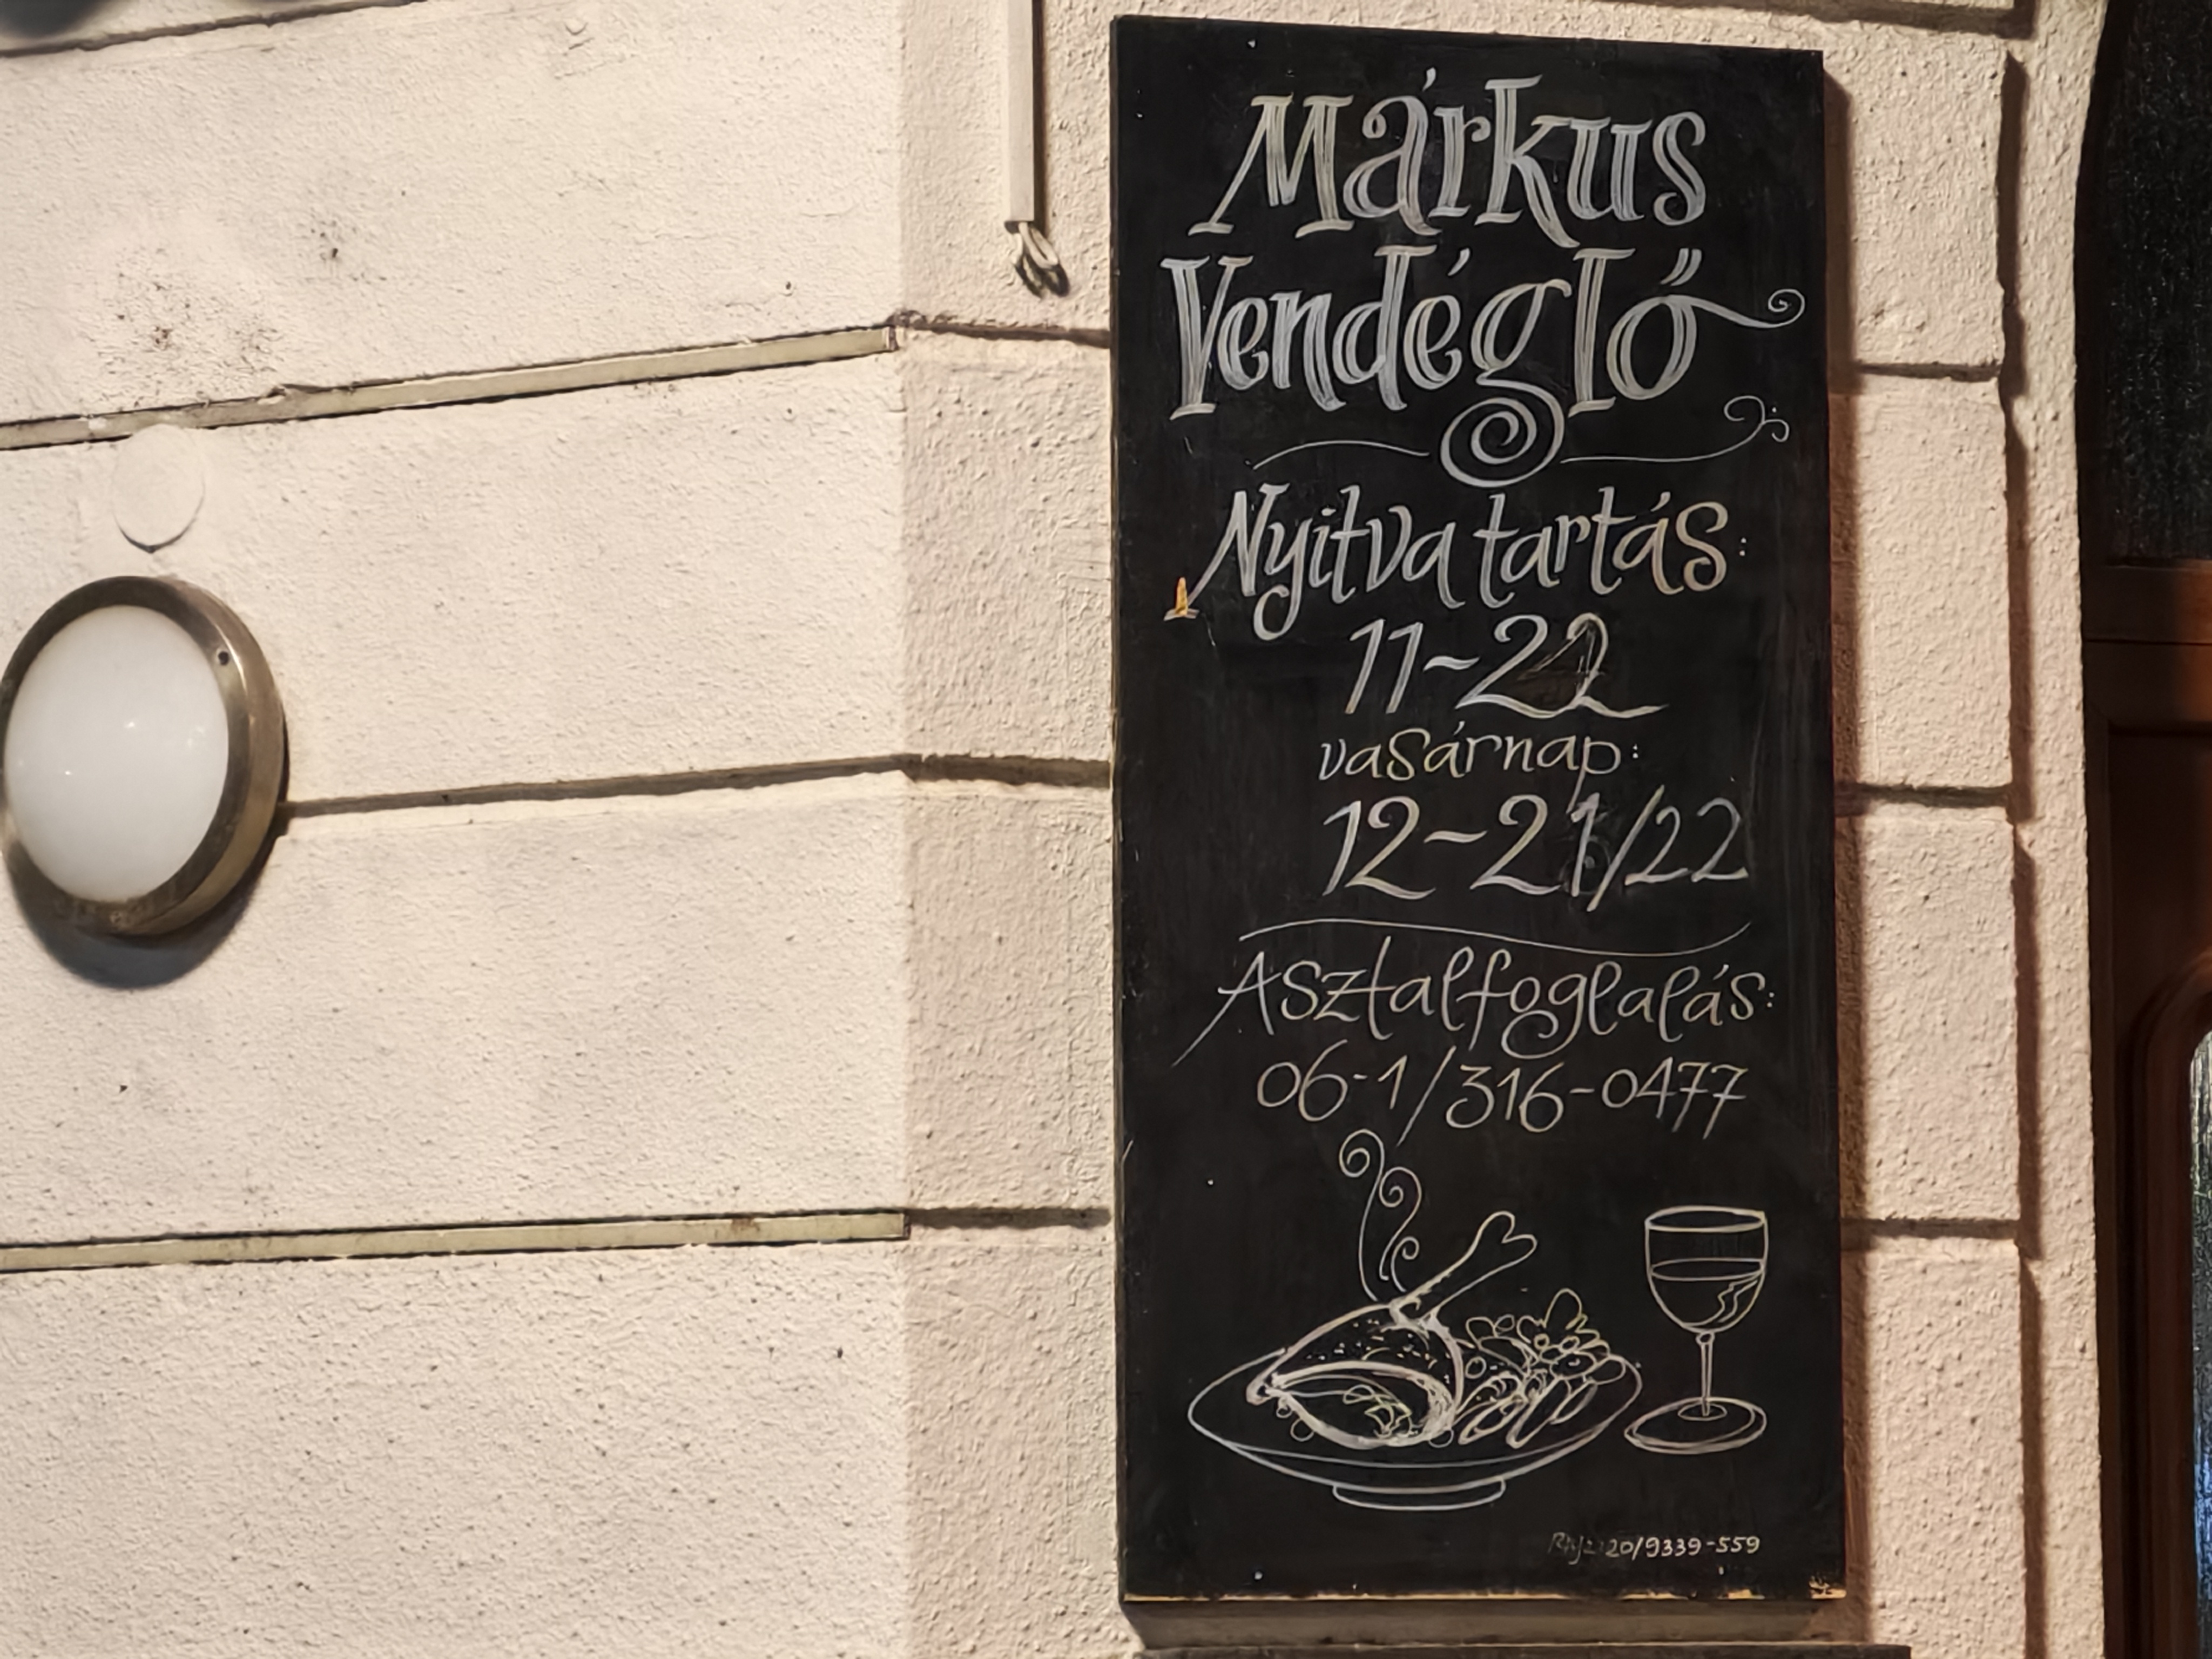 Márkus
Vendéglő
Nyitva tartás:
11-22
vasárnap:
12-21/22
Asztalfoglalás:
06-1/316-0477
20/9339-559